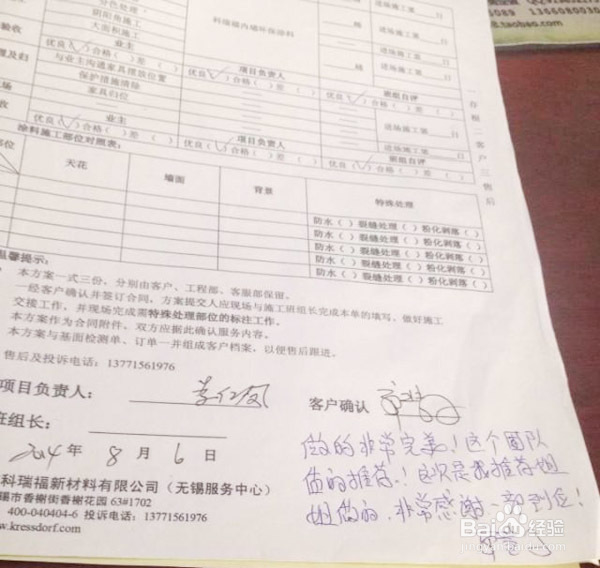 分色处理
阴阳角施工
大面积施工
科瑞福内墙环保涂料
进场施工第 日
进场施工第 日
进场施工第 日
验收
业主
优良(✓)合格( )差( )
项目负责人
优良(✓)合格( )差( )
班组自评
优良(✓)合格( )差( )
与业主沟通家具摆放位置
保护措施清除
家具归位
进场施工第 日
进场施工第 日
业主
优良(✓)合格( )差( )
项目负责人
优良(✓)合格( )差( )
班组自评
优良(✓)合格( )差( )
涂料施工部位对照表:
天花 墙面 背景 特殊处理
防水( )裂缝处理( )粉化剥落( )
防水( )裂缝处理( )粉化剥落( )
防水( )裂缝处理( )粉化剥落( )
防水( )裂缝处理( )粉化剥落( )
防水( )裂缝处理( )粉化剥落( )
温馨提示:
本方案一式三份,分别由客户、工程部、客服部保留。
一经客户确认并签订合同,方案提交人应现场与施工班组长完成本单的填写、做好施工
交接工作,并现场完成需特殊处理部位的标注工作。
本方案作为合同附件,双方应据此确认服务内容。
本方案与基面检测单、订单一并组成客户档案,以便售后跟进。
售后及投诉电话:13771561976
项目负责人:
客户确认
班组长:
2014年 8月 6日
做的非常完美!这个团队
值的推荐!这次是我推荐姐
姐做的,非常感谢
到位!
科瑞福新材料有限公司(无锡服务中心)
锡市香榭街香榭花园 63#1702
400-040404-6 投诉电话:13771561976
www.kressdorf.com
Baidu经验